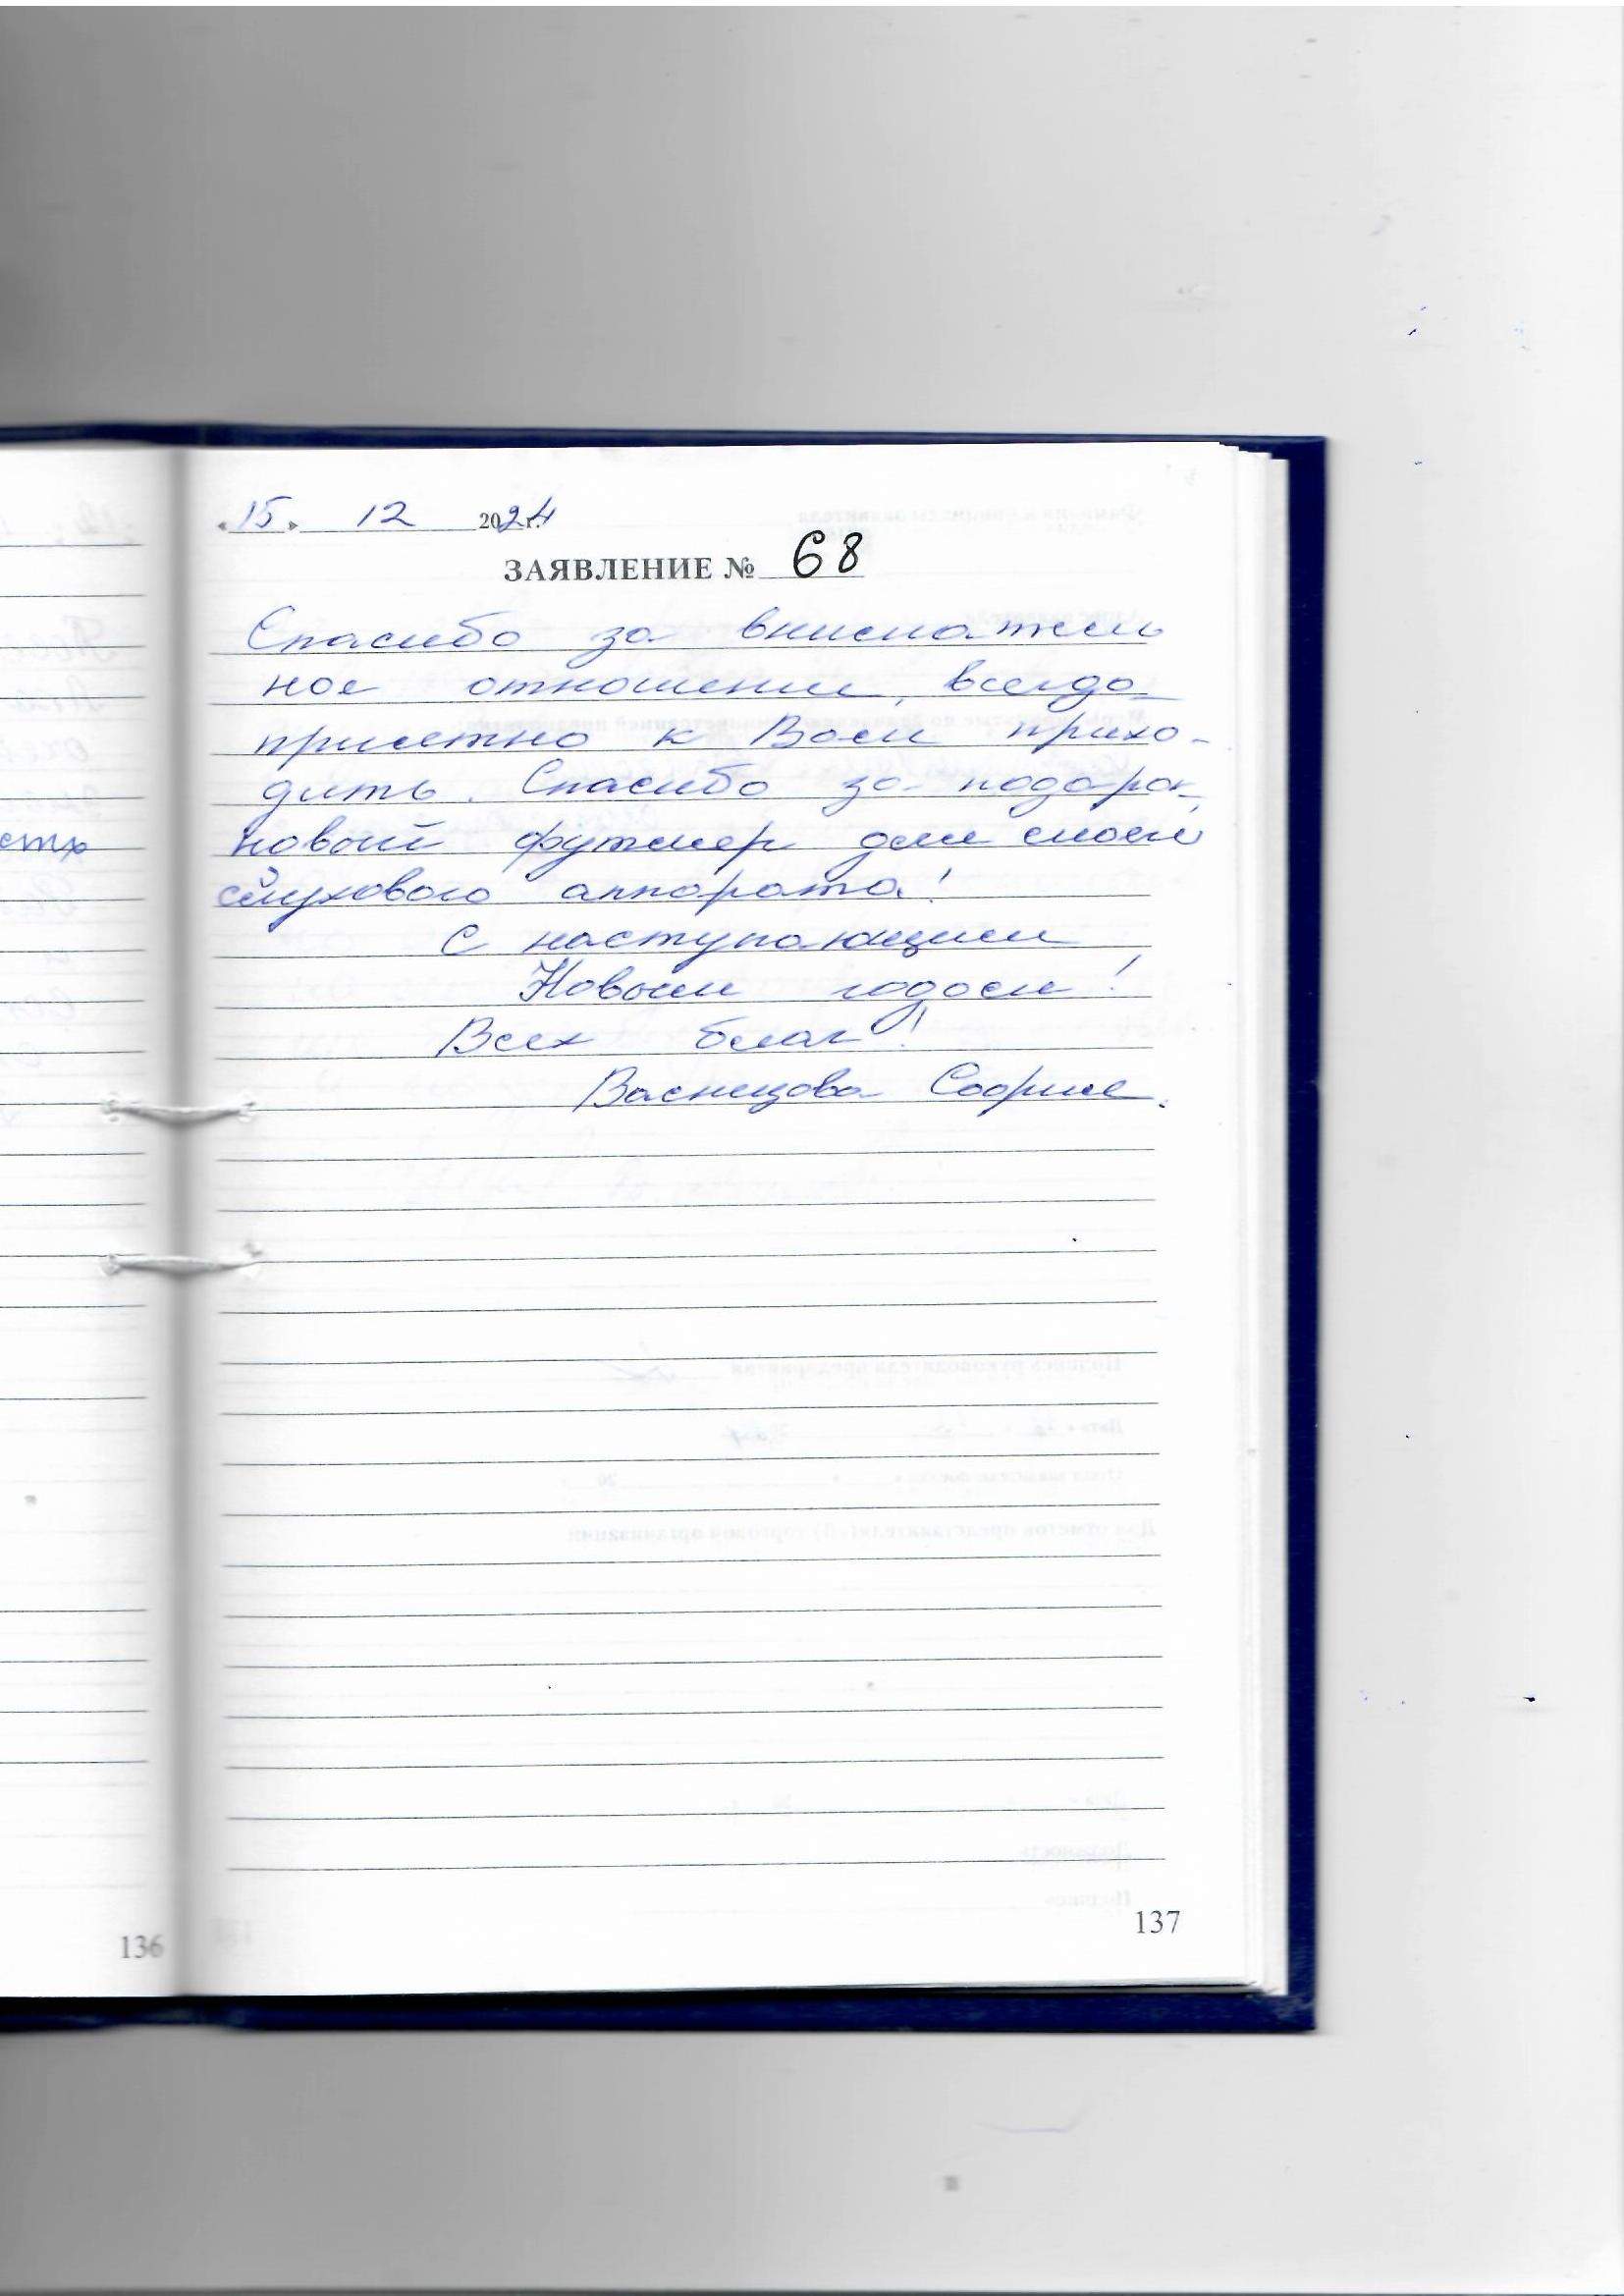 «15» 12 2024 г.
ЗАЯВЛЕНИЕ № 68
Спасибо за вниматель
ное отношении, всегда
приятно к Вам прихо-
дить. Спасибо за подарок,
новый футляр для моего
слухового аппарата!
С наступающим
Новым годом!
Всех благ!
Васнецова София.
стх
136
137